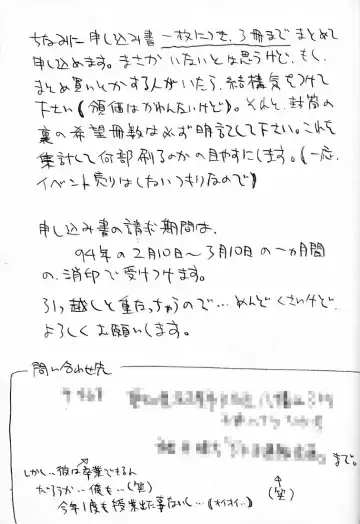 ちなみに申し込み書一枚につき、3冊までまとめて
申し込めます。まさかいないとは思うけど、もし、
まとめ買いとかする人がいたら、結構気をつけて
下さい(領価はかわんないけど)。それと、封筒の
裏の希望冊数は必ず明記して下さい。これを
集計して何部刷るのかの目やすにします。(一応、
イベント売りはしないつもりなので)
申し込み書の請求期間は、
94年の2月10日〜3月10日の一カ月間
の、消印で受けつけます。
引っ越しと重なっちゃうので…めんどくさいけど、
よろしくお願いします。
問い合わせ先
まで。
しかし…彼は卒業できるん
だろうか…僕も…(笑)
今年1度も授業出た事ないし…(オイオイ…)
(笑)